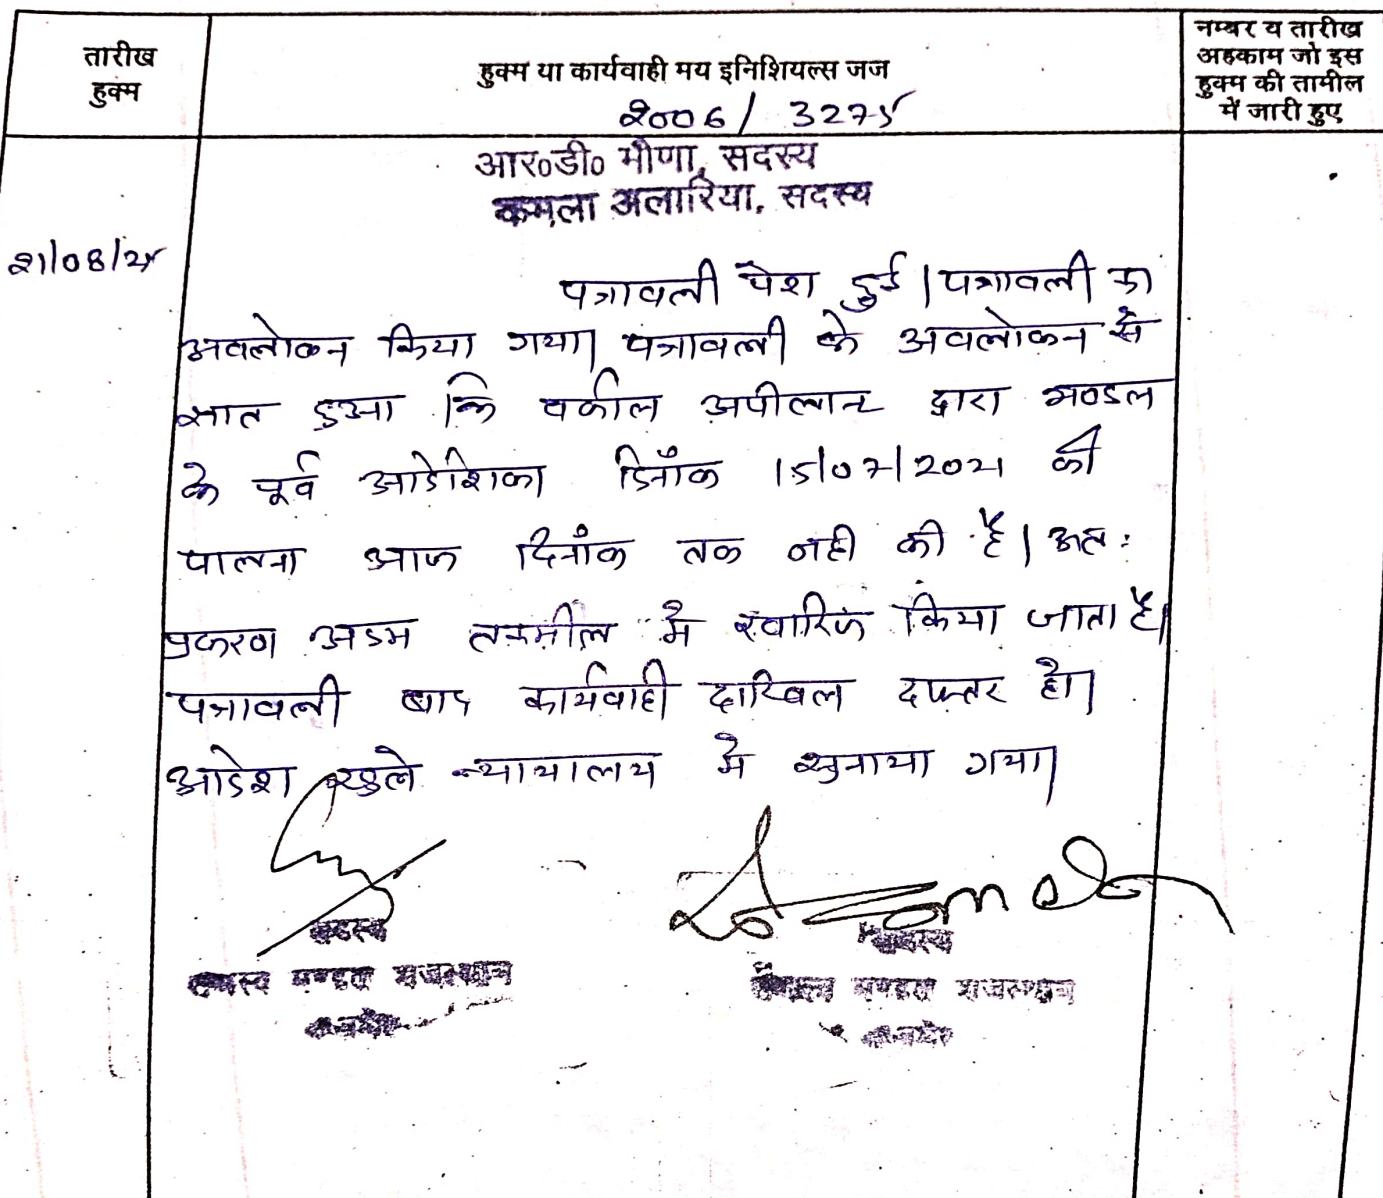 तारीख
हुक्म
हुक्म या कार्यवाही मय इनिशियल्स जज
नम्बर व तारीख
अहकाम जो इस
हुक्म की तामील
में जारी हुए
2006/ 3275
आर०डी० मीणा, सदस्य
कमला अलारिया, सदस्य
21/08/25
पत्रावली पेश हुई। पत्रावली का
अवलोकन किया गया। पत्रावली के अवलोकन से
ज्ञात हुआ कि वकील अपीलान्ट द्वारा मण्डल
के पूर्व आदेशिका दिनाँक 15/07/2021 की
पालना आज दिनाँक तक नही की है। अतः
प्रकरण अदम तकमील मे खारिज किया जाता है।
पत्रावली बाद कार्यवाही दाखिल दफ्तर हो।
आदेश खुले न्यायालय मे सुनाया गया।
सदस्य
राजस्व मण्डल राजस्थान
अजमेर
सदस्य
राजस्व मण्डल राजस्थान
अजमेर